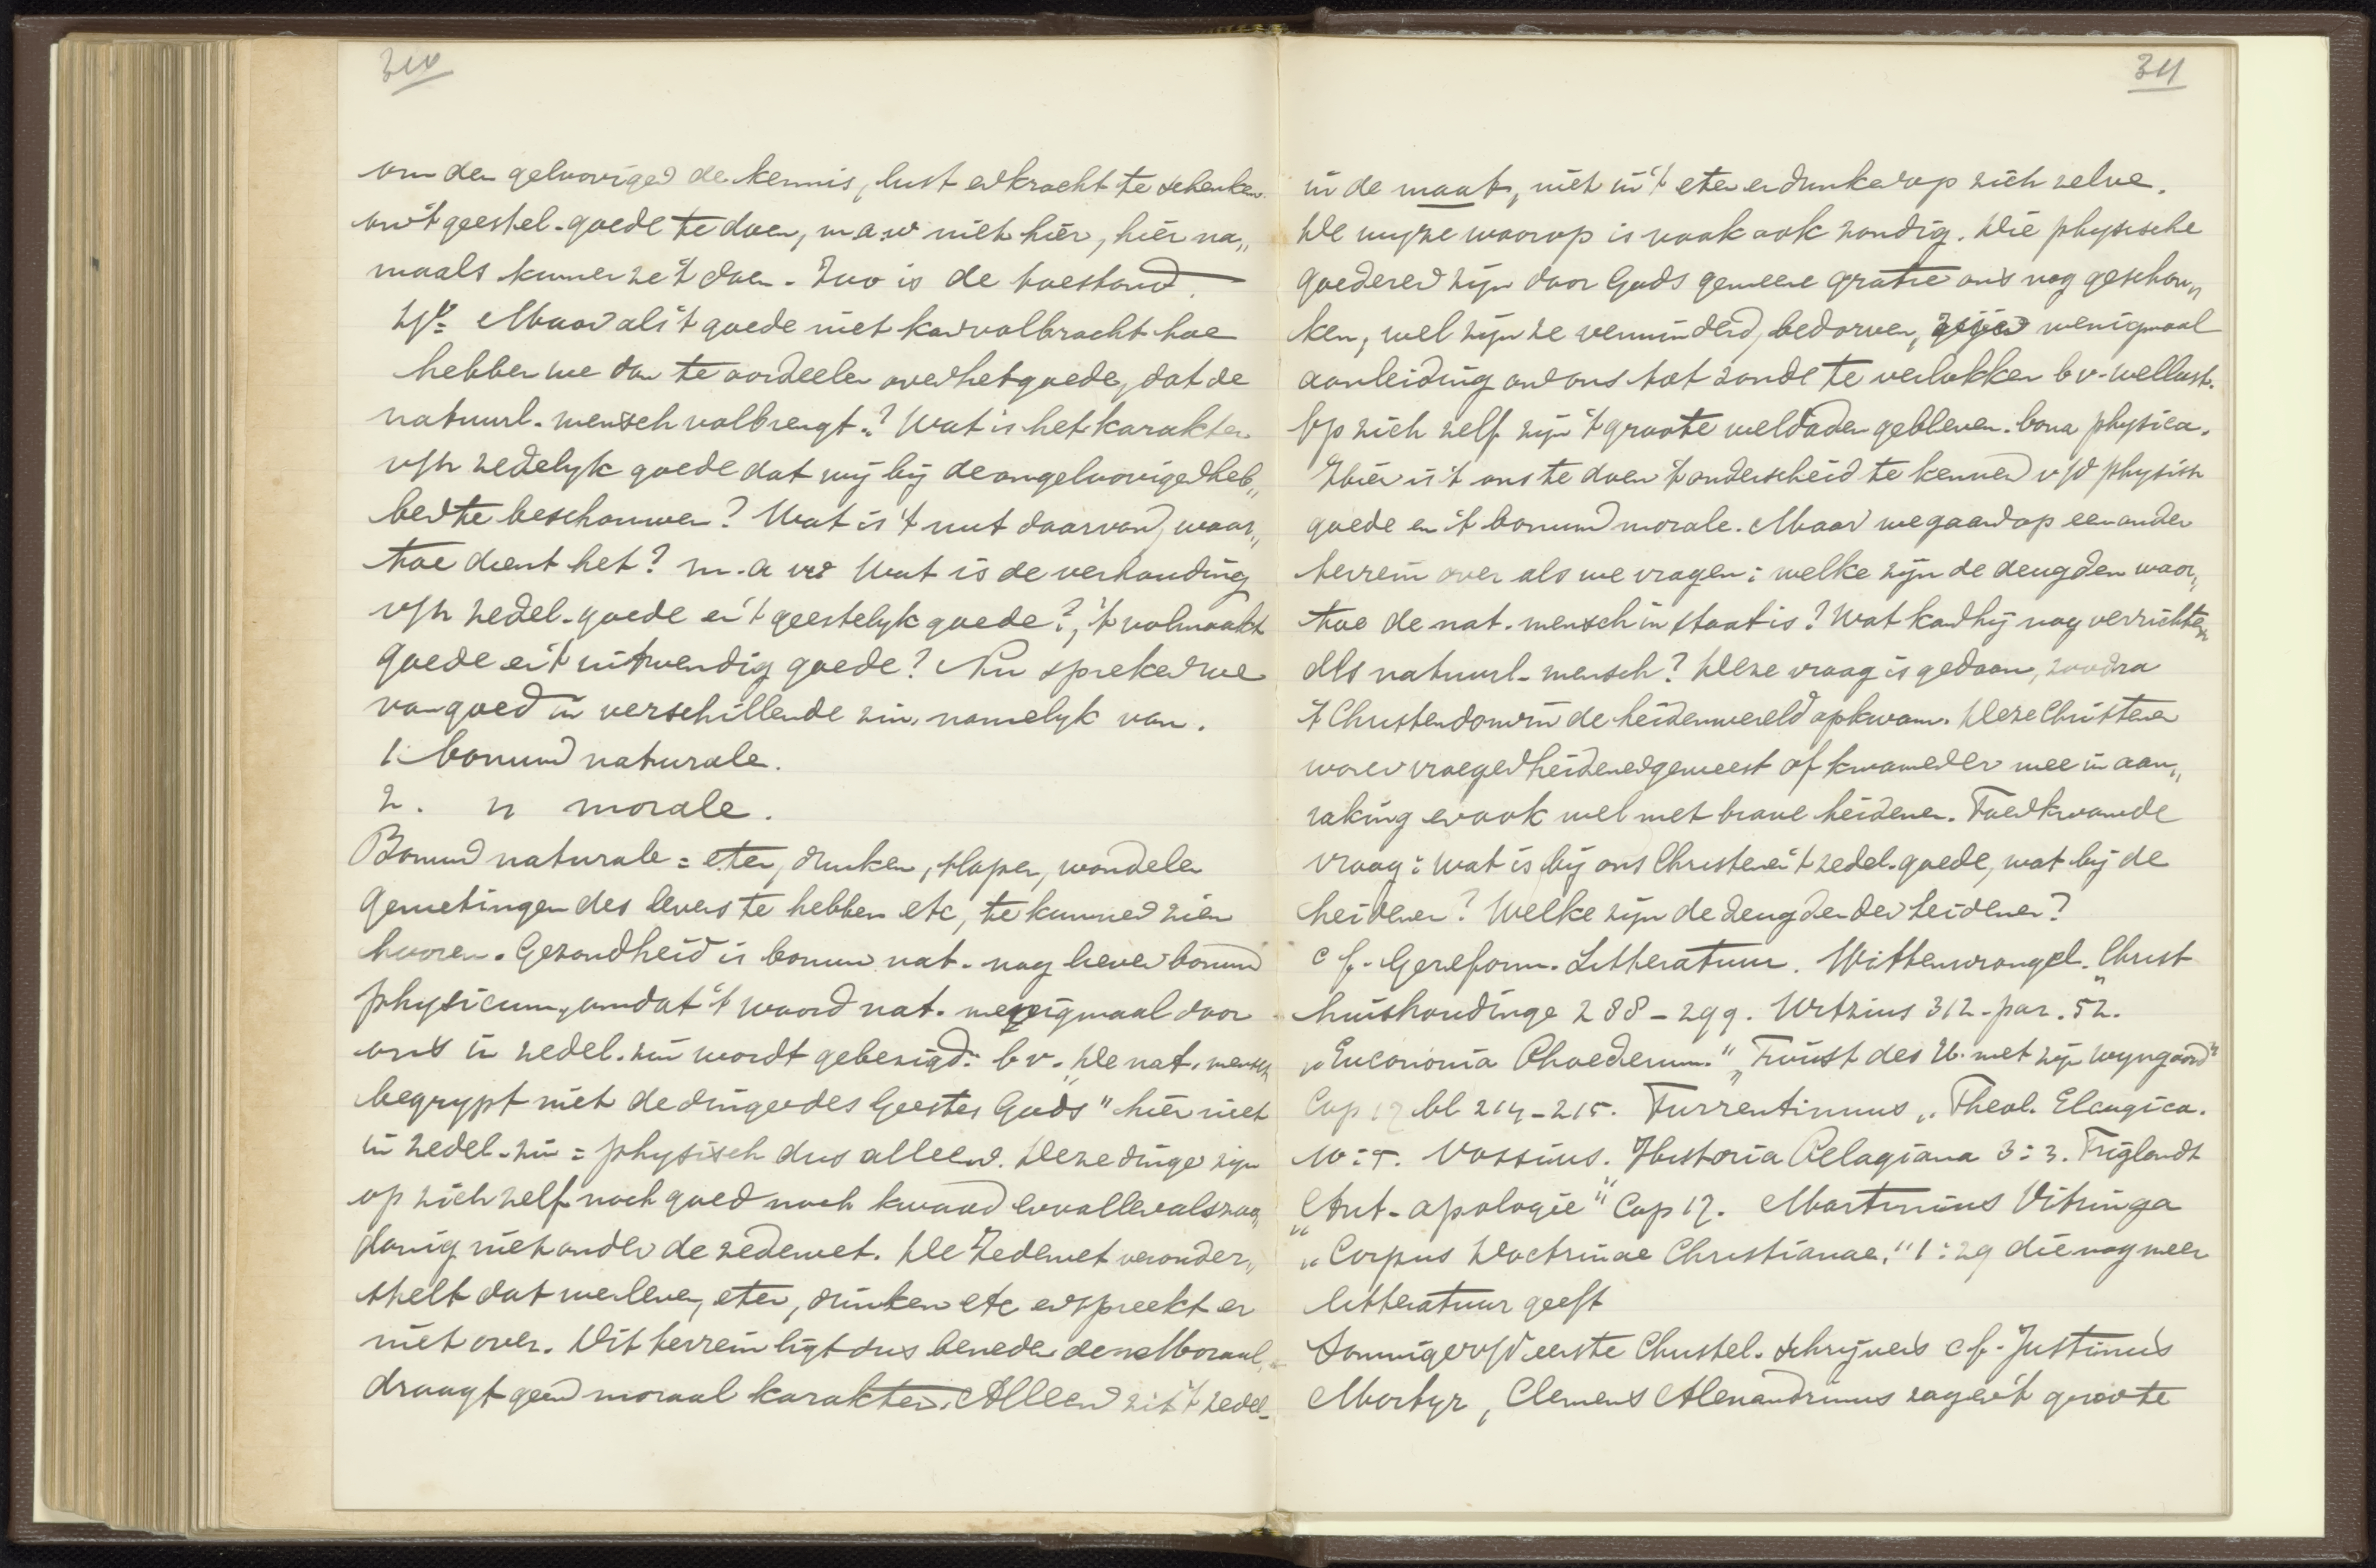 310
om den geloovigen de kennis, lust en kracht te schenken
om 't geestel. goede te doen, m.a.w. niet hier, hier na„
maals kunnen ze 't doen. Zoo is de toestand.
Maar als 't goede niet kan volbracht hoe
hebben we dan te oordeelen over het goede, dat de
natuurl. mensch volbrengt? Wat is het karakter
v/h zedelyk goede dat wij bij de ongeloovigen heb„
ben te beschouwen? Wat is 't nut daarvan, waar„
toe dient het? m.a.w. Wat is de verhouding
v/h zedel. goede en 't geestelyk goede?, 't volmaakt
goede en 't uitwendig goede? Nu spreken we
van goed in verschillende zin, namelyk van.
1. bonum naturale.
2. „ morale.
Bonum naturale = eten, drinken, slapen, wandelen
genietingen des levens te hebben etc, te kunnen zien
hooren. Gezondheid is bonum nat. nog liever bonum
physicum, omdat 't woord nat. menigmaal door
ons in zedel. zin wordt gebezigd. bv. „De nat. mensch
begrypt niet de dingen des Geestes Gods" hier niet
in zedel. zin = physisch dus alleen. Deze dingen zijn
op zich zelf noch goed noch kwaad en vallen als zoo„
danig niet onder de zedewet. De Zedewet veronder„
stelt dat we leven, eten, drinken etc en spreekt er
niet over. Dit terrein ligt dus beneden de Moraal,
draagt geen moraal karakter. Alleen zit 't zedel-
311
in de maat, niet in 't eten en drinken op zich zelve.
De wyze waarop is vaak ook zondig. Die physische
goederen zijn door Gods gemeene gratie ons nog geschon„
ken, wel zijn ze verminderd, bedorven, menigmaal
aanleiding om ons tot zonde te verlokken bv. wellust.
Op zich zelf zijn 't groote weldaden gebleven. bona physica.
Hier is 't ons te doen 't onderscheid te kennen v/d physisch
goede en 't bonum morale. Maar we gaan op een ander
terrein over als we vragen: welke zijn de deugden waar„
toe de nat. mensch in staat is? Wat kan hij nog verrichten
als natuurl. mensch? Deze vraag is gedaan, zoodra
't Christendom in de heidenwereld opkwam. Deze Christenen
waren vroeger heidenen geweest of kwamen er mee in aan„
raking en ook wel met brave heidenen. Toen kwam de
vraag: wat is bij ons Christenen 't zedel. goede, wat bij de
heidenen? Welke zijn de deugden der heidenen?
cf. Gereform. Litteratuur. Wittenwrongel. „Christ
huishoudinge 288–299. Witzius 312. par. 52.
„Euconomia Phoederum." „Twist des H. met zijn Wyngaard"
Cap 17 bl 214–215. Turrentinus „Theol. Elengica.
10:5. Vossius. „Historia Pelagiana 3:3. Triglandt
„Ant-apologie" Cap 17. Martinius Vitringa
„Corpus Doctrinae Christianae." 1:29 die nog meer
litteratuur geeft
Sommigen v/d eerste Christel. schrijvers cf. Justinus
Martyr, Clemens Alexandrinus zagen 't groote